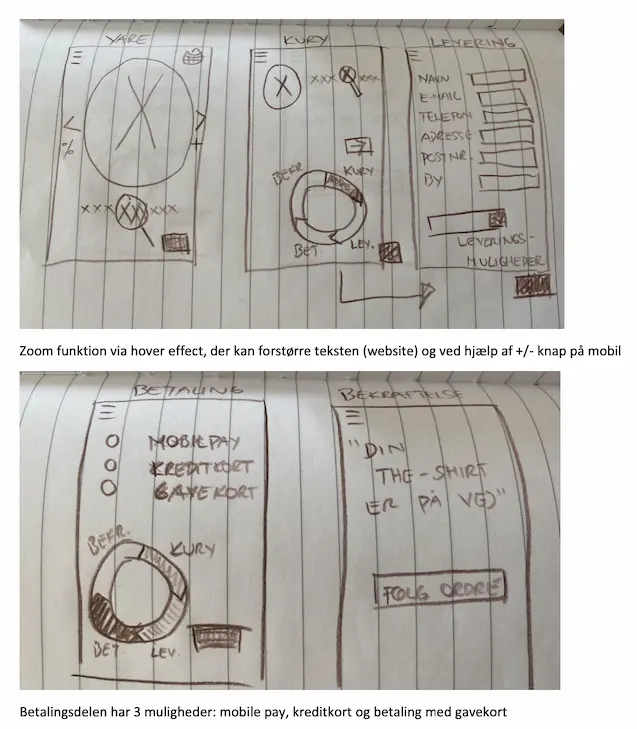 VARE
KURV
LEVERING
%
+
XXX XX XXX
X
XXX X XXX
BEKR.
KURV
BET.
LEV.
NAVN
E-MAIL
TELEFON
ADRESSE
POSTNR.
BY
LEVERINGS-
MULIGHEDER
Zoom funktion via hover effect, der kan forstørre teksten (website) og ved hjælp af +/- knap på mobil
BETALING
BEKRÆFTELSE
MOBILEPAY
KREDITKORT
GAVEKORT
BEKR.
KURV
BET.
LEV.
"DIN
THE-SHIRT
ER PÅ VEJ"
FØLG ORDRE
Betalingsdelen har 3 muligheder: mobile pay, kreditkort og betaling med gavekort